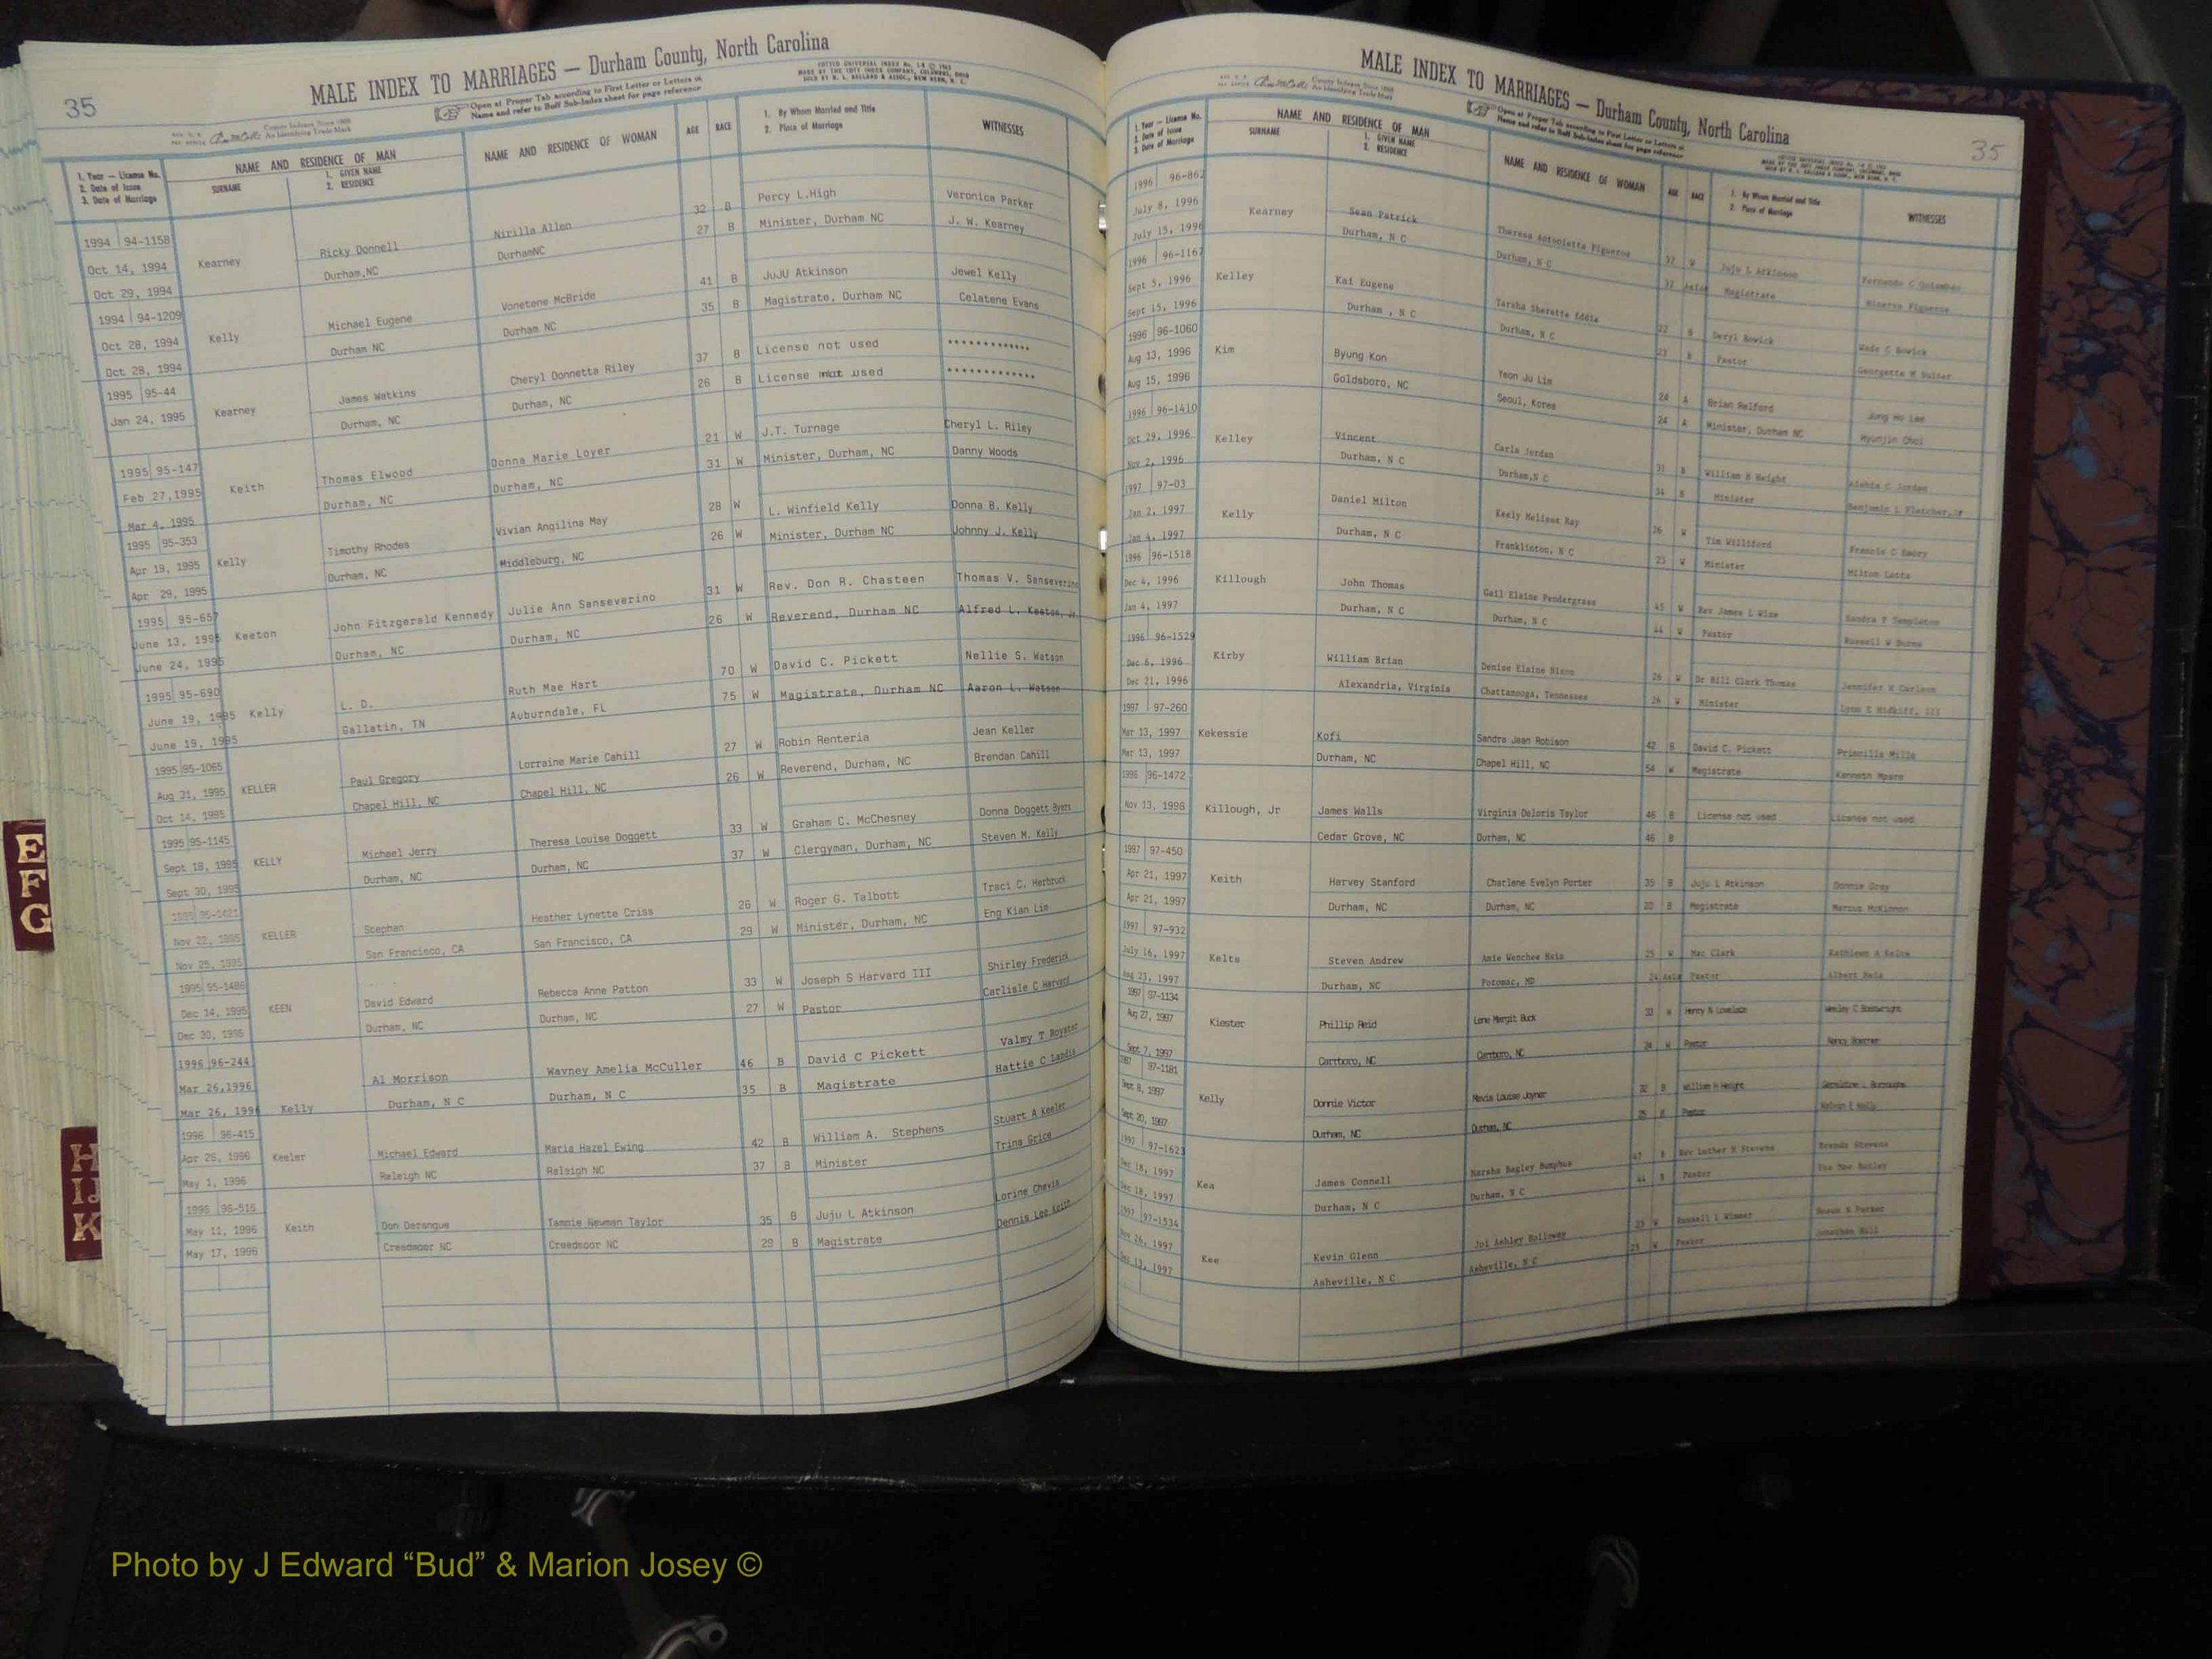 35
MALE INDEX TO MARRIAGES — Durham County, North Carolina
Open at Proper Tab according to First Letter or Letters in
Name and refer to Buff Sub-Index sheet for page reference
1. Year — License No.
2. Date of Issue
3. Date of Marriage
NAME AND RESIDENCE OF MAN
SURNAME
1. GIVEN NAME
2. RESIDENCE
NAME AND RESIDENCE OF WOMAN
AGE
RACE
1. By Whom Married and Title
2. Place of Marriage
WITNESSES
1994 94-1158 Ricky Donnell Nirilla Allen 32 B Percy L.High Veronica Parker
Oct 14, 1994 Kearney Durham,NC DurhamNC 27 B Minister, Durham NC J. W. Kearney
Oct 29, 1994
1994 94-1209 Michael Eugene Vonetene McBride 41 B JuJU Atkinson Jewel Kelly
Oct 28, 1994 Kelly Durham NC Durham NC 35 B Magistrate, Durham NC Celatene Evans
Oct 28, 1994
1995 95-44 James Watkins Cheryl Donnetta Riley 37 B License not used *************
Jan 24, 1995 Kearney Durham, NC Durham, NC 26 B License used *************
1995 95-147 Thomas Elwood Donna Marie Loyer 21 W J.T. Turnage Cheryl L. Riley
Feb 27,1995 Keith Durham, NC Durham, NC 31 W Minister, Durham, NC Danny Woods
Mar 4, 1995
1995 95-353 Timothy Rhodes Vivian Angilina May 28 W L. Winfield Kelly Donna B. Kelly
Apr 19, 1995 Kelly Durham, NC Middleburg, NC 26 W Minister, Durham NC Johnny J. Kelly
Apr 29, 1995
1995 95-657 John Fitzgerald Kennedy Julie Ann Sanseverino 31 W Rev. Don R. Chasteen Thomas V. Sanseverino
June 13, 1995 Keeton Durham, NC Durham, NC 26 W Reverend, Durham NC Alfred L. Keeton, Jr
June 24, 1995
1995 95-690 L. D. Ruth Mae Hart 70 W David C. Pickett Nellie S. Watson
June 19, 1995 Kelly Gallatin, TN Auburndale, FL 75 W Magistrate, Durham NC Aaron L. Watson
June 19, 1995
1995 95-1065 Paul Gregory Lorraine Marie Cahill 27 W Robin Renteria Jean Keller
Aug 31, 1995 KELLER Chapel Hill, NC Chapel Hill, NC 26 W Reverend, Durham, NC Brendan Cahill
Oct 14, 1995
1995 95-1145 Michael Jerry Theresa Louise Doggett 33 W Graham C. McChesney Donna Doggett Byers
Sept 18, 1995 KELLY Durham, NC Durham, NC 37 W Clergyman, Durham, NC Steven M. Kelly
Sept 30, 1995
1995 95-1421 Stephan Heather Lynette Criss 26 W Roger G. Talbott Traci C. Herbruck
Nov 22, 1995 KELLER San Francisco, CA San Francisco, CA 29 W Minister, Durham, NC Eng Kian Lim
Nov 25, 1995
1995 95-1486 David Edward Rebecca Anne Patton 33 W Joseph S Harvard III Shirley Frederick
Dec 14, 1995 KEEN Durham, NC Durham, NC 27 W Pastor Carlisle C Harvard
Dec 30, 1995
1996 96-244 Al Morrison Wavney Amelia McCuller 46 B David C Pickett Valmy T Royster
Mar 26,1996 Durham, N C Durham, N C 35 B Magistrate Hattie C Landis
Mar 26, 1996 Kelly
1996 96-415 Michael Edward Maria Hazel Ewing 42 B William A. Stephens Stuart A Keeler
Apr 26, 1996 Keeler Raleigh NC Raleigh NC 37 B Minister Trina Grice
May 1, 1996
1996 96-515 Don Derangue Tammie Newman Taylor 35 B Juju L Atkinson Lorine Chavis
May 11, 1996 Keith Creedmoor NC Creedmoor NC 29 B Magistrate Dennis Lee Keith
May 17, 1996
35
MALE INDEX TO MARRIAGES — Durham County, North Carolina
Open at Proper Tab according to First Letter or Letters in
Name and refer to Buff Sub-Index sheet for page reference
1. Year — License No.
2. Date of Issue
3. Date of Marriage
NAME AND RESIDENCE OF MAN
SURNAME
1. GIVEN NAME
2. RESIDENCE
NAME AND RESIDENCE OF WOMAN
AGE
RACE
1. By Whom Married and Title
2. Place of Marriage
WITNESSES
1996 96-862 Sean Patrick Theresa Antonietta Figueroa 37 W Juju L Atkinson Fernando C Quiamban
July 8, 1996 Kearney Durham, N C Durham, N C 37 Asian Magistrate Minerva Figueroa
July 15, 1996
1996 96-1167 Kai Eugene Tarsha Sharette Eddie 22 B Deryl Bowick Wade C Bowick
Sept 5, 1996 Kelley Durham , N C Durham, N C 23 B Pastor Georgette M Suiter
Sept 15, 1996
1996 96-1060 Byung Kon Yeon Ju Lim 24 A Brian Relford Jung Ho Lee
Aug 13, 1996 Kim Goldsboro, NC Seoul, Korea 24 A Minister, Durham NC Hyunjin Choi
Aug 15, 1996
1996 96-1410 Vincent Carla Jordan 31 B William H Height C Jordan
Oct 29, 1996 Kelley Durham, N C Durham,N C 34 B Minister Benjamin L Fletcher,JR
Nov 2, 1996
1997 97-03 Daniel Milton Keely Melissa Ray 26 W Tim Williford Francis C Emory
Jan 2, 1997 Kelly Durham, N C Franklinton, N C 23 W Minister Milton Latta
Jan 4, 1997
1996 96-1518 John Thomas Gail Elaine Pendergrass 45 W Rev James L Wise Sandra P Templeton
Dec 4, 1996 Killough Durham, N C Durham, N C 44 W Pastor Russell W Burns
Jan 4, 1997
1996 96-1529 William Brian Denise Elaine Nixon 26 W Dr Bill Clark Thomas Jennifer K Carlson
Dec 6, 1996 Kirby Alexandria, Virginia Chattanooga, Tennessee 26 W Minister Lynn E Midkiff, III
Dec 21, 1996
1997 97-260 Kofi Sandra Jean Robison 42 B David C. Pickett Priscilla Mills
Mar 13, 1997 Kekessie Durham, NC Chapel Hill, NC 54 W Magistrate Kenneth Mpare
Mar 13, 1997
1996 96-1472 James Walls Virginia Deloris Taylor 46 B License not used License not used
Nov 13, 1996 Killough, Jr Cedar Grove, NC Durham, NC 46 B
1997 97-450 Harvey Stanford Charlene Evelyn Porter 35 B Juju L Atkinson Donnie Gray
Apr 21, 1997 Keith Durham, NC Durham, NC 20 B Magistrate Marcus McKinnon
Apr 21, 1997
1997 97-932 Steven Andrew Amie Wenchee Hsia 25 W Mac Clark Kathleen A Kelts
July 16, 1997 Kelts Durham, NC Potomac, MD 24 Asia Pastor Albert Hsia
Aug 23, 1997
1997 97-1134 Phillip Reid Lene Margit Buck 33 W Henry N Lovelace Wesley C Boatwright
Aug 27, 1997 Kiester Carrboro, NC Carrboro, NC 34 W Pastor Nancy
Sept 7, 1997
1997 97-1181 Donnie Victor Mavis Louise Joyner 32 B William H Height Geraldine L Burroughs
Sept 8, 1997 Kelly Durham, NC Durham, NC 25 B Pastor Kelly
Sept 20, 1997
1997 97-1623 James Connell Marsha Bagley Bumphus 47 B Rev Luther H Stevens Brenda Stevens
Dec 18, 1997 Kea Durham, N C Durham, N C 44 B Pastor Mae Bailey
Dec 18, 1997
1997 97-1534 Kevin Glenn Joi Ashley Holloway 23 W Russell L Winner Susan B Parker
Nov 26, 1997 Kee Asheville, N C Asheville, N C 23 W Pastor Jonathan Hall
Dec 13, 1997
EFG
HIJK
Photo by J Edward “Bud” & Marion Josey ©